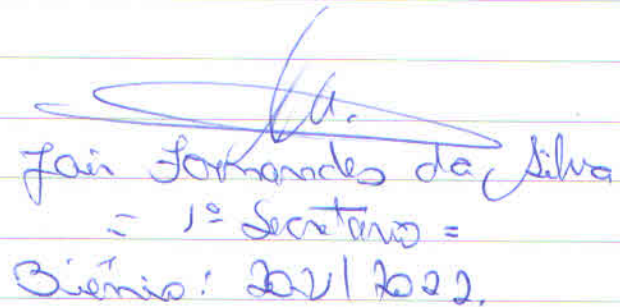 Jair Fernandes da Silva
= 1º Secretário =
Biênio: 2021/2022.